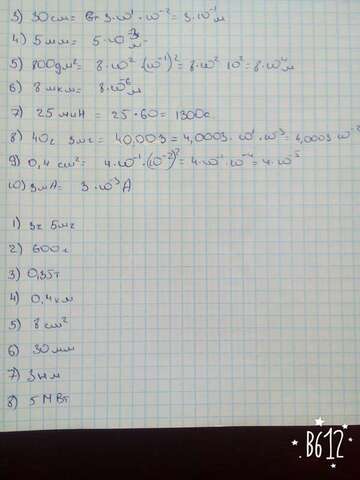 3) 30 см = 3·10¹·10⁻² = 3·10⁻¹ м
4) 5 мм = 5·10⁻³ м
5) 800дм² = 8·10² (10⁻¹)² = 8·10² 10² = 8·10⁴ м
6) 8 мкм = 8·10⁻⁶ м
7) 25 мин = 25·60 = 1300с
8) 40г 3мг = 40,003 = 4,0003·10¹·10⁻³ = 4,0003·10⁻²
9) 0,4 см² = 4·10⁻¹·(10⁻²)² = 4·10⁻¹·10⁻⁴ = 4·10⁻⁵
10) 3мА = 3·10⁻³ А
1) 3г 5мг
2) 600г
3) 0,35т
4) 0,4км
5) 8 см²
6) 30мм
7) 3нм
8) 5 МВт
B612